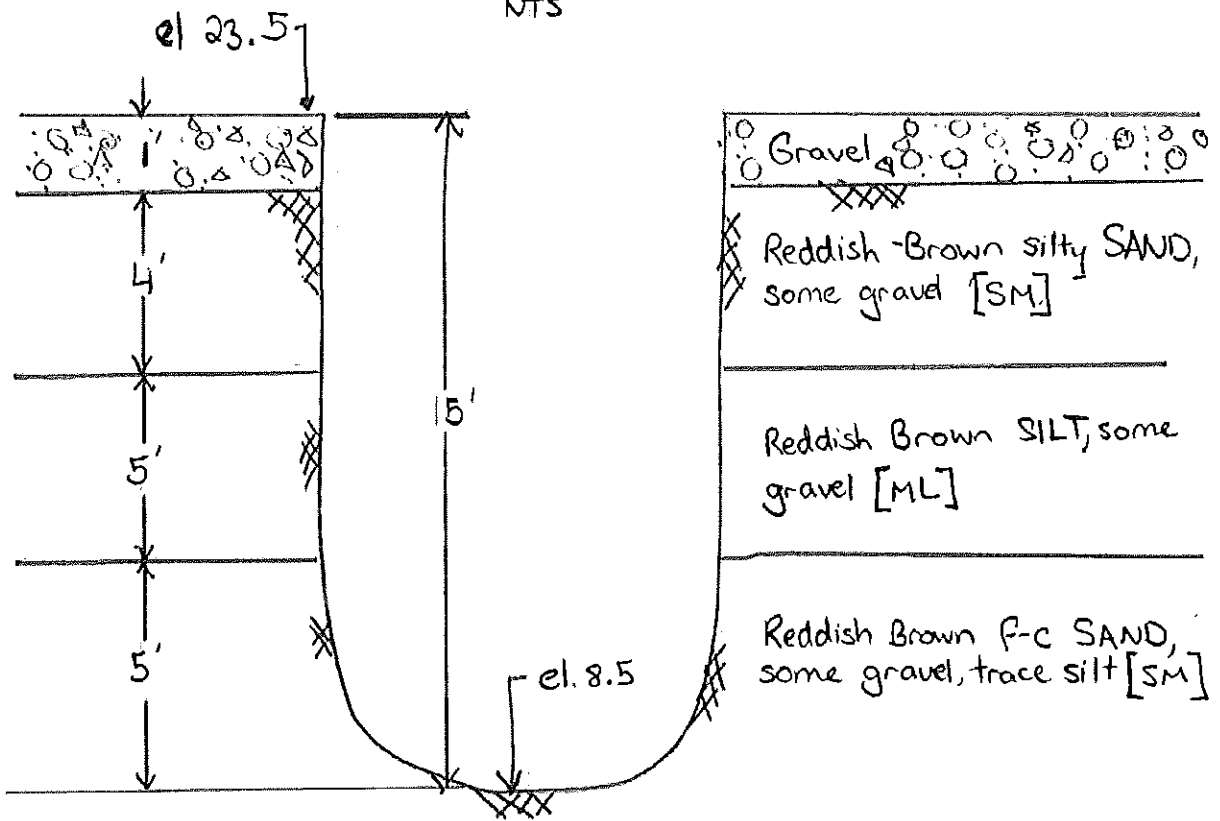 NTS
el 23.5
1'
Gravel
4'
Reddish-Brown silty SAND,
some gravel [SM]
15'
5'
Reddish Brown SILT, some
gravel [ML]
5'
Reddish Brown f-c SAND,
some gravel, trace silt [SM]
el. 8.5